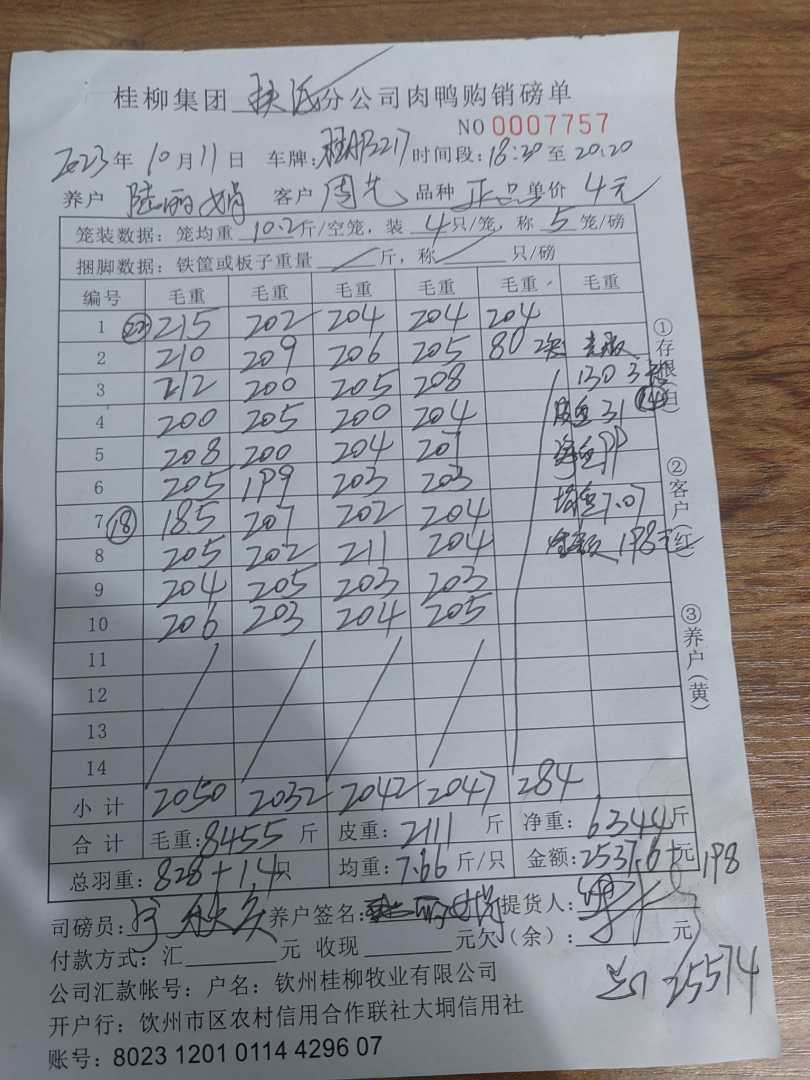 桂柳集团 扶 分公司肉鸭购销磅单
NO 0007757
2023年10月11日 车牌: 时间段:18:20至20:20
养户 陆丽娟 客户 周先 品种 正品 单价 4元
笼装数据:笼均重 10.2斤/空笼,装 4只/笼,称 5 笼/磅
捆脚数据:铁筐或板子重量 / 斤,称 / 只/磅
编号 毛重 毛重 毛重 毛重 毛重 毛重
1 ㉒ 215 202 204 204 204
2 210 209 206 205 80
3 212 200 205 208 130 3
4 200 205 200 204 皮重 31 ⑭
5 208 200 204 207 净重 99
6 205 199 203 203
7 ⑱ 185 207 202 204 均重 7.07
8 205 202 211 204 金额 198元
9 204 205 203 203
10 206 203 204 205
11
12
13
14
小计 2050 2032 2042 2047 284
合计 毛重:8455斤 皮重:2111斤 净重:6344斤
总羽重:828+14只 均重:7.66斤/只 金额:25376元 198
司磅员: 养户签名:陆丽娟 提货人:
付款方式:汇 元 收现 元欠(余): 元
公司汇款帐号:户名:钦州桂柳牧业有限公司
25574
开户行:饮州市区农村信用合作联社大垌信用社
账号:8023 1201 0114 4296 07
①存根(白)
②客户(红)
③养户(黄)